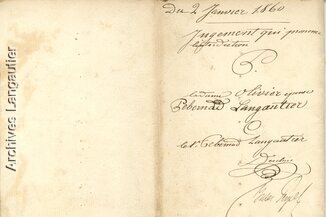 Archives Langautier
Du 2 Janvier 1860
Jugement qui prononce
interdiction
Madame Olivier épouse
Pebernad Langautier
Le Sr. Pebernad Langautier